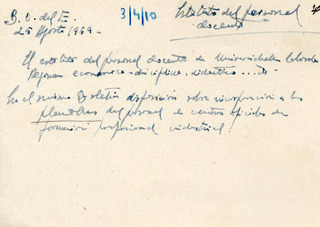 B. O. del E.
25 Agosto 1969.
3/4/10
Estatuto del personal
docente
El estatuto del personal docente de Universidades laborales
Régimen económico - disciplinar
En el mismo Boletín disposición sobre incorporación a las
plantillas del personal de centros oficiales de
formación profesional industrial